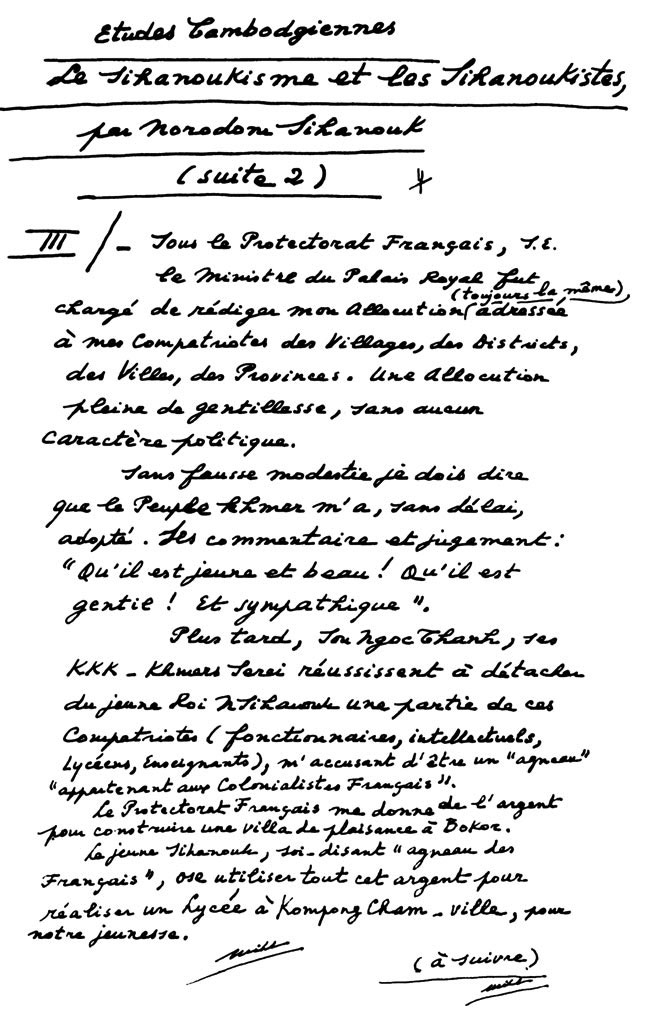 Etudes Cambodgiennes
Le Sihanoukisme et les Sihanoukistes,
par Norodom Sihanouk
(suite 2)
III/- Sous le Protectorat Français, S.E.
le Ministre du Palais Royal fut
(toujours la même),
chargé de rédiger mon Allocution adressée
à mes Compatriotes des Villages, des Districts,
des Villes, des Provinces. Une Allocution
pleine de gentillesse, sans aucun
caractère politique.
Sans fausse modestie je dois dire
que le Peuple khmer m'a, sans délai,
adopté. Ses commentaire et jugement :
"Qu'il est jeune et beau ! Qu'il est
gentil ! Et sympathique".
Plus tard, Son Ngoc Thanh, ses
KKK - Khmers Serei réussissent à détacher
du jeune Roi N Sihanouk une partie de ces
Compatriotes (fonctionnaires, intellectuels,
Lycéens, Enseignants), m'accusant d'être un "agneau"
"appartenant aux Colonialistes Français".
Le Protectorat Français me donne de l'argent
pour construire une villa de plaisance à Bokor.
Le jeune Sihanouk, soi-disant "agneau des
Français", ose utiliser tout cet argent pour
réaliser un Lycée à Kompong Cham - ville, pour
notre jeunesse.
(à suivre)